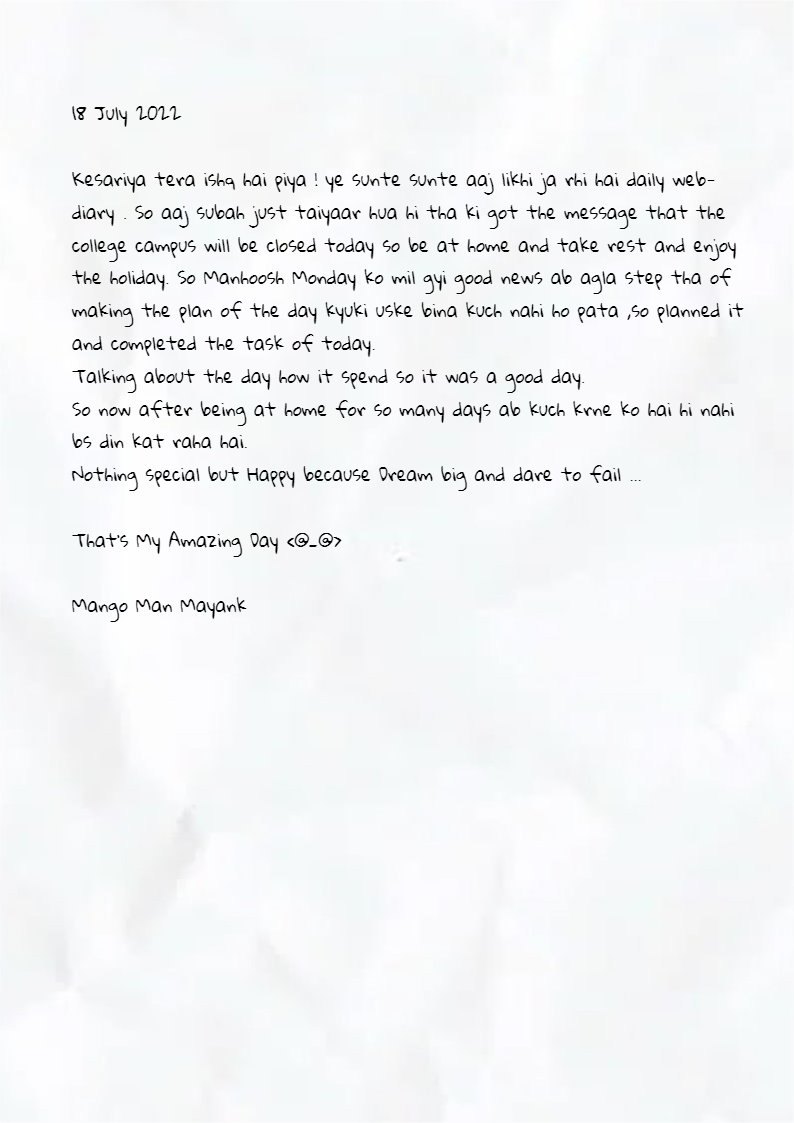 18 July 2022
Kesariya tera ishq hai piya ! ye sunte sunte aaj likhi ja rhi hai daily web-
diary . So aaj subah just taiyaar hua hi tha ki got the message that the
college campus will be closed today so be at home and take rest and enjoy
the holiday. So Manhoosh Monday ko mil gyi good news ab agla step tha of
making the plan of the day kyuki uske bina kuch nahi ho pata ,so planned it
and completed the task of today.
Talking about the day how it spend so it was a good day.
So now after being at home for so many days ab kuch krne ko hai hi nahi
bs din kat raha hai.
Nothing special but Happy because Dream big and dare to fail ...
That's My Amazing Day <@_@>
Mango Man Mayank